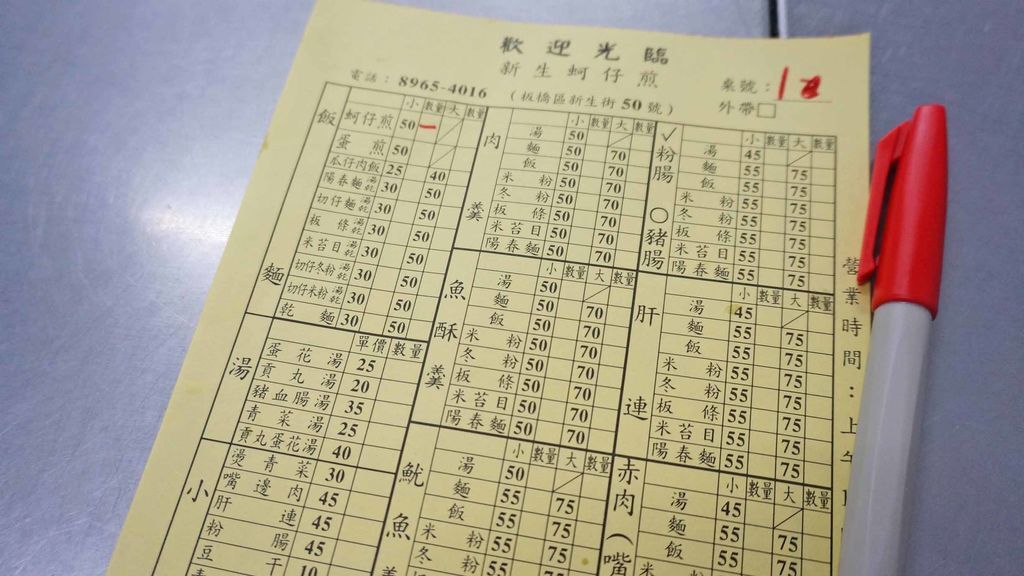 歡迎光臨
新生蚵仔煎
電話：8965-4016 （板橋區新生街50號） 桌號：18
外帶□
飯 麵
小 數量 大 數量
蚵仔煎 50 一
蛋煎 50
瓜仔肉飯 25 40
陽春麵 湯乾 30 50
切仔麵 湯乾 30 50
板條 湯乾 30 50
米苔目 湯乾 30 50
切仔冬粉 湯乾 30 50
切仔米粉 湯乾 30 50
乾麵 30 50
湯
單價 數量
蛋花湯 25
貢丸湯 20
豬血腸湯 35
青菜湯 25
貢丸蛋花湯 40
小
燙青菜 30
嘴邊肉 45
肝連 45
粉腸 45
豆干 10
肉羹
小 數量 大 數量
湯 50
麵 50 70
飯 50 70
米粉 50 70
冬粉 50 70
板條 50 70
米苔目 50 70
陽春麵 50 70
魚酥羹
小 數量 大 數量
湯 50
麵 50 70
飯 50 70
米粉 50 70
冬粉 50 70
板條 50 70
米苔目 50 70
陽春麵 50 70
魷魚羹
小 數量 大 數量
湯 50
麵 55 75
飯 55 75
米粉 55 75
冬 55 75
✓粉腸 ○豬腸
小 數量 大 數量
湯 45
麵 55 75
飯 55 75
米粉 55 75
冬粉 55 75
板條 55 75
米苔目 55 75
陽春麵 55 75
肝連
小 數量 大 數量
湯 45
麵 55 75
飯 55 75
米粉 55 75
冬粉 55 75
板條 55 75
米苔目 55 75
陽春麵 55 75
赤肉（嘴
小 數量 大 數量
湯 45
麵 55 75
飯 55 75
米粉 55
營業時間：上午